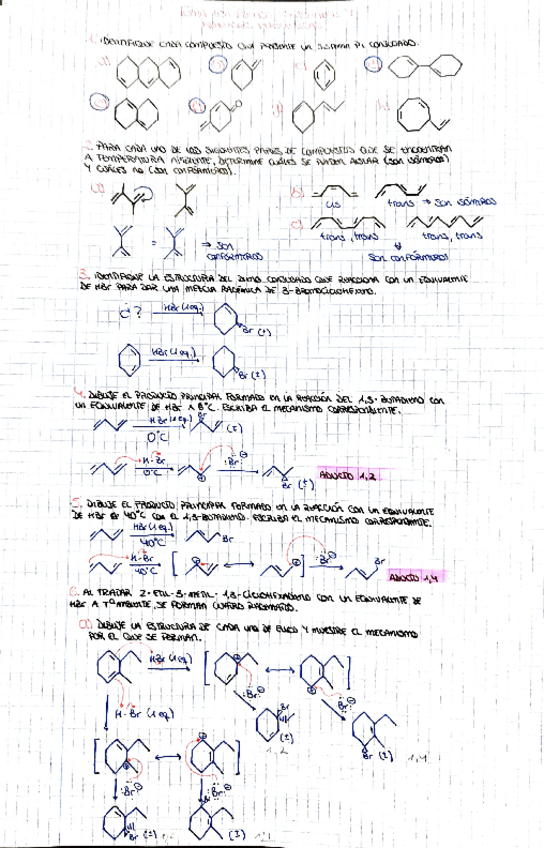 1. IDENTIFIQUE CADA COMPUESTO QUE PRESENTE UN SISTEMA PI CONJUGADO.
2. PARA CADA UNO DE LOS SIGUIENTES PARES DE COMPUESTOS QUE SE ENCUENTRAN
A TEMPERATURA AMBIENTE, DETERMINE CUÁLES SE PUEDEN AISLAR (SON ISÓMEROS)
Y CUÁLES NO (SON CONFÓRMEROS).
a)
b)
cis
trans → SON ISÓMEROS
c)
trans, trans
trans, trans
= → SON
CONFÓRMEROS
SON CONFÓRMEROS
3. IDENTIFIQUE LA ESTRUCTURA DEL DIENO CONJUGADO QUE REACCIONA CON UN EQUIVALENTE
DE HBr PARA DAR UNA MEZCLA RACÉMICA DE 3-BROMOCICLOHEXENO.
¿? HBr (1 eq.)
Br (±)
HBr (1 eq.)
Br (±)
4. DIBUJE EL PRODUCTO PRINCIPAL FORMADO EN LA REACCIÓN DEL 1,3-BUTADIENO CON
UN EQUIVALENTE DE HBr A 0°C. ESCRIBA EL MECANISMO CORRESPONDIENTE.
HBr (1 eq.)
0°C
Br
(±)
H-Br
0°C
Br
Br (±)
ADUCTO 1,2
5. DIBUJE EL PRODUCTO PRINCIPAL FORMADO EN LA REACCIÓN CON UN EQUIVALENTE
DE HBr A 40°C CON EL 1,3-BUTADIENO. ESCRIBA EL MECANISMO CORRESPONDIENTE.
HBr (1 eq.)
40°C
Br
H-Br
40°C
Br
Br
ADUCTO 1,4
6. AL TRATAR 2-ETIL-3-METIL-1,3-CICLOHEXADIENO CON UN EQUIVALENTE DE
HBr A Tº AMBIENTE, SE FORMAN CUATRO
a) DIBUJE LA ESTRUCTURA DE CADA UNO DE ELLOS Y MUESTRE EL MECANISMO
POR EL QUE SE FORMAN.
HBr (1 eq.)
Br
Br
H-Br (1 eq.)
Br
(±)
1,2
Br (±)
1,4
Br
Br
Br (±)